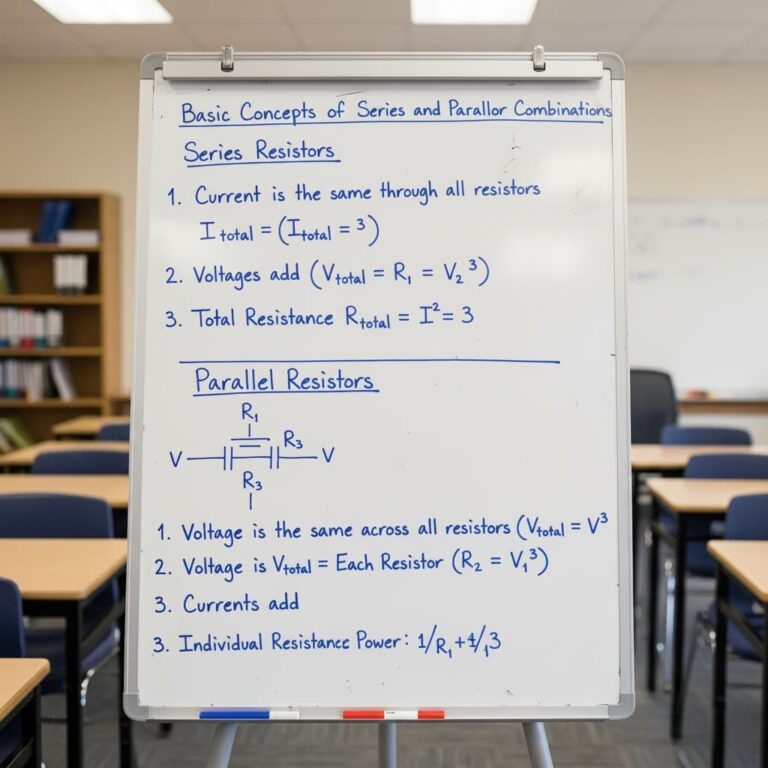 Basic Concepts of Series and Parallor Combinations
Series Resistors
1. Current is the same through all resistors
I total = (I total = ³)
2. Voltages add (V total = R₁ = V₂ ³)
3. Total Resistance R total = I² = 3
Parallel Resistors
R₁
R₃
V V
R₃
1. Voltage is the same across all resistors (V total = V³
2. Voltage is V total = Each Resistor (R₂ = V₁³)
3. Currents add
3. Individual Resistance Power: 1/R₁+4/₁3